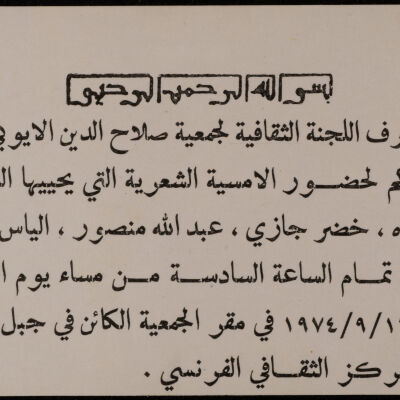 بسم الله الرحمن الرحيم
رف اللجنة الثقافية لجمعية صلاح الدين الايوبي
كم لحضـــور الامسية الشعرية التي يحييها ال
ه ، خضر جازي ، عبد الله منصور ، الياس
تمـــام الساعة السادســـة مـــن مساء يوم ا
١٩٧٤/٩/١ في مقر الجمعية الكائن في جبل
ركز الثقـــافي الفرنسي .